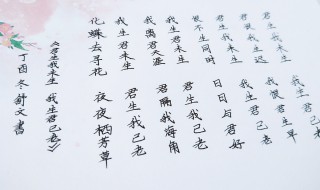 君生我未生
我生君已老
君恨我生迟
我恨君生早
君生我未生
我生君已老
恨不生同时
日日与君好
我生君未生
君生我已老
我离君天涯
君隔我海角
我生君未生
君生我已老
化蝶去寻花
夜夜栖芳草
《君生我未生 我生君已老》
丁酉冬舒文书